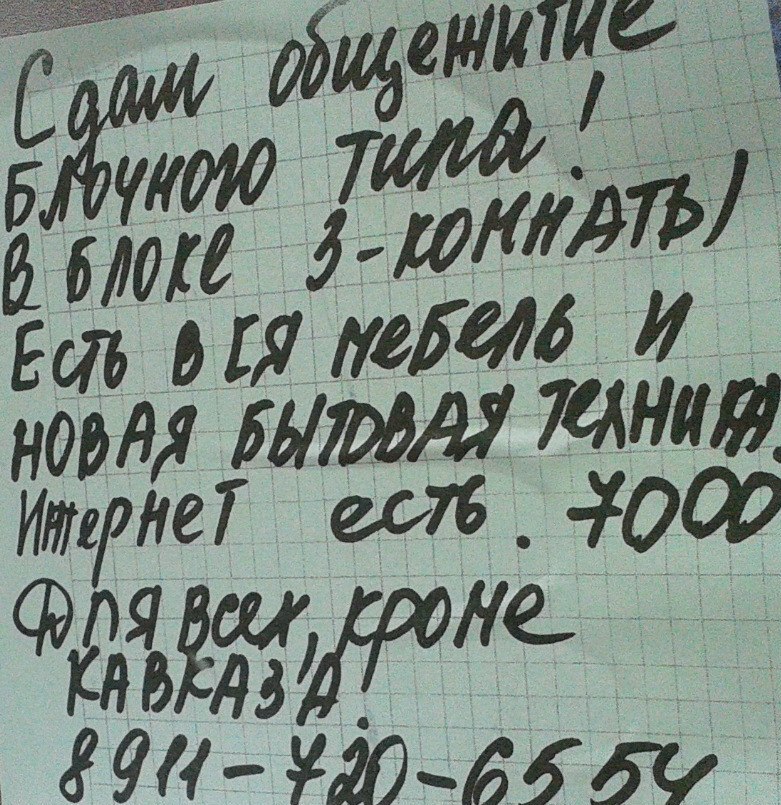 Сдам общежитие
Блочного типа!
В блоке 3-комнаты)
Есть вся мебель и
новая бытовая техника.
Интернет есть. 7000
Для всех, кроме
КАВКАЗА!
8911-720-6554